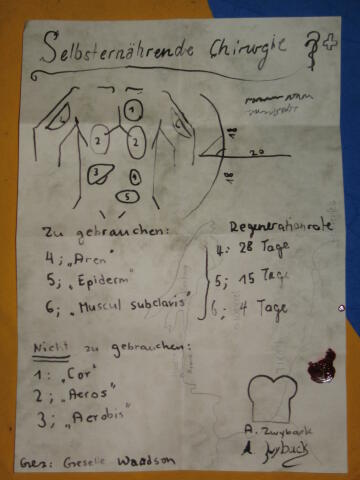 Selbsternährende Chirurgie
1
2
2
3
4
5
6
18
20
18
Zu gebrauchen:
Regenerationrate
4; „Aren"
4: 28 Tage
5; „Epiderm"
5; 15 Tage
6; „Muscul subclaris"
6; 4 Tage
Nicht zu gebrauchen:
1: „Cor"
2; „Aeros"
3; „Aerobis"
A. Zwyback
A. Zwyback
Gez: Geselle Waadson